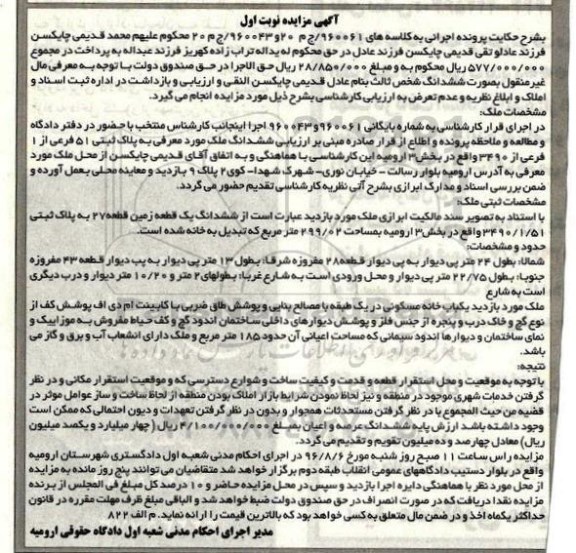 آگهی مزایده نوبت اول
بشرح حکایت پرونده اجرایی به کلاسه های ۹۶۰۰۶۱/ج م ۲۰ و ۹۶۰۰۴۳/ج م ۲۰ محکوم علیهم محمد قدیمی چایکسن
فرزند عادلو تقی قدیمی چایکسن فرزند عادل در حق محکوم له یداله تراب زاده کهریز فرزند عبداله به پرداخت در مجموع
۵۷۷/۰۰۰/۰۰۰ ریال محکوم به و مبلغ ۲۸/۸۵۰/۰۰۰ ریال حق الاجرا در حق صندوق دولت با توجه به معرفی مال
غیر منقول بصورت ششدانگ شخص ثالث بنام عادل قدیمی چایکسن التقی و ارزیابی و بازداشت در اداره ثبت اسناد و
املاک و ابلاغ نظریه و عدم تعرض به ارزیابی کارشناسی بشرح ذیل مورد مزایده انجام می گیرد.
مشخصات ملک:
در اجرای قرار کارشناسی به شماره بایگانی ۹۶۰۰۶۱ و ۹۶۰۰۴۳ اجرا اینجانب کارشناس منتخب با حضور در دفتر دادگاه
و مطالعه و ملاحظه پرونده و اطلاع از قرار صادره مبنی بر ارزیابی ششدانگ ملک مورد معرفی به پلاک ثبتی ۵۱ فرعی از ۱
فرعی از ۳۴۹۰ واقع در بخش ۳ ارومیه این کارشناسی با هماهنگی و به اتفاق آقای قدیمی چایکسن از محل ملک مورد
معرفی به آدرس ارومیه بلوار رسالت - خیابان نوری- شهرک شهدا- کوی ۲ پلاک ۹ بازدید و معاینه محلی بعمل آورده و
ضمن بررسی اسناد و مدارک ابرازی بشرح آتی نظریه کارشناسی تقدیم حضور می گردد.
مشخصات ثبتی ملک:
با استناد به تصویر سند مالکیت ابرازی ملک مورد بازدید عبارت است از ششدانگ یک قطعه زمین قطعه ۲۷ به پلاک ثبتی
۳۴۹۰/۱/۵۱ واقع در بخش ۳ ارومیه بمساحت ۲۹۹/۰۲ متر مربع که تبدیل به خانه شده است.
حدود و مشخصات:
شمالا: بطول ۲۴ متر پی دیوار به پی دیوار قطعه ۲۸ مفروزه شرقا: بطول ۱۳ متر پی دیوار به پی دیوار قطعه ۴۳ مفروزه
جنوبا: بطول ۲۲/۷۵ متر پی دیوار و محل ورودی است به شارع غربا: بطولهای ۲ متر و ۱۰/۲۰ متر دیوار و درب دیگری
است به شارع
ملک مورد بازدید یکباب خانه مسکونی در یک طبقه با مصالح بنایی و پوشش طاق ضربی با کابینت ام دی اف پوشش کف از
نوع گچ و خاک درب و پنجره از جنس فلز و پوشش دیوارهای داخلی ساختمان اندود گچ و کف حیاط مفروش به موزاییک و
نمای ساختمان و دیوارها اندود سیمانی که مساحت اعیانی آن حدود ۱۸۵ متر مربع و ملک دارای انشعاب آب و برق و گاز می
باشد.
نتیجه:
با توجه به موقعیت و محل استقرار قطعه و قدمت و کیفیت ساخت و شوارع دسترسی که و موقعیت استقرار مکانی و در نظر
گرفتن خدمات شهری موجود در منطقه و نیز لحاظ نمودن شرایط بازار املاک بودن منطقه از لحاظ ساخت و ساز عوامل موثر در
قضیه من حیث المجموع با در نظر گرفتن مستحدثات همجوار و بدون در نظر گرفتن تعهدات و دیون احتمالی که ممکن است
وجود داشته باشد ارزش پایه ششدانگ عرصه و اعیان بمبلغ ۴/۱۰۰/۰۰۰/۰۰۰ ریال (چهار میلیارد و یکصد میلیون
ریال) معادل چهارصد و ده میلیون تقویم و تقدیم می گردد.
مزایده راس ساعت ۱۱ صبح روز شنبه مورخ ۹۶/۸/۶ در اجرای احکام مدنی شعبه اول دادگستری شهرستان ارومیه
واقع در بلوار دستیب دادگاههای عمومی انقلاب طبقه دوم برگزار خواهد شد متقاضیان می توانند پنج روز مانده به مزایده
از محل مورد نظر با هماهنگی دایره اجرا بازدید و سپس در محل مزایده حاضر و ۱۰ درصد کل مبلغ فی المجلس از برنده
مزایده نقدا دریافت که در صورت انصراف در حق صندوق دولت ضبط خواهد شد و الباقی مبلغ ظرف مهلت مقرره در قانون
حداکثر یکماه اخذ و در ضمن مال متعلق به کسی خواهد بود که بالاترین قیمت را ارائه نماید. م الف ۸۲۲
مدیر اجرای احکام مدنی شعبه اول دادگاه حقوقی ارومیه